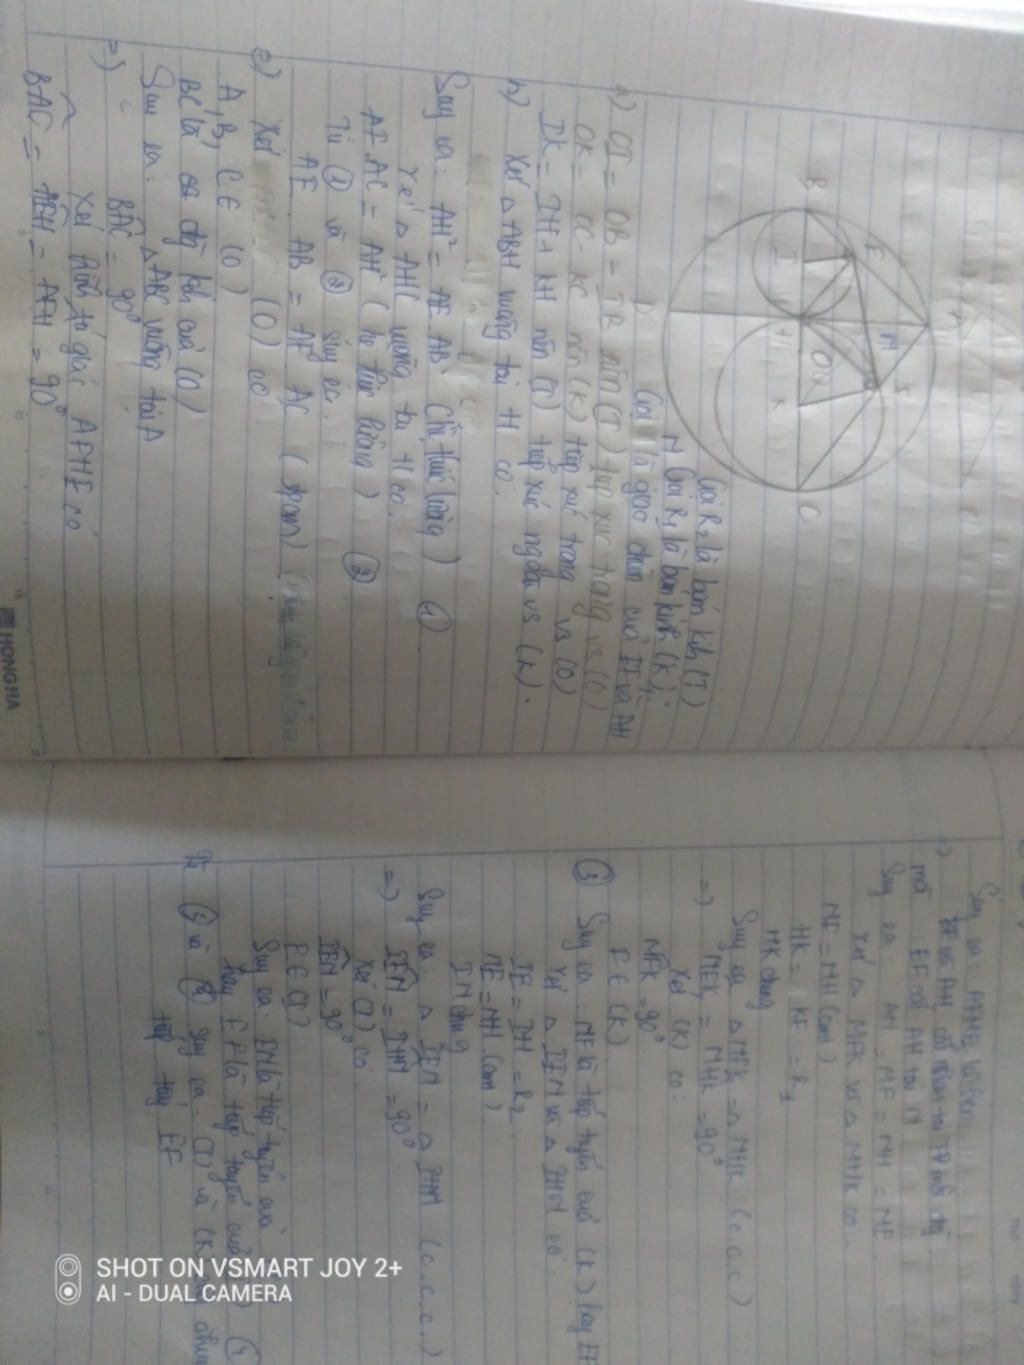 A
E
F
M
B
I
H
O
K
C
D
Gọi R2 là bán kính (I)
Gọi R1 là bán kính (K)
M là giao điểm của EF và AH
a) OI = OB - IB nên (I) tiếp xúc trong vs (O)
OK = OC - KC nên (K) tiếp xúc trong vs (O)
IK = IH + KH nên (I) tiếp xúc ngoài vs (K).
b) Xét △ABH vuông tại H có:
Suy ra: AH² = AE. AB (hệ thức lượng) ①
Xét △ AHC vuông tại H có:
AF. AC = AH² (hệ thức lượng) ②
Từ ① và ② suy ra:
AE. AB = AF. AC (đpcm)
c) Xét (O) có
A, B, C ∈ (O)
BC là đường kính của (O)
Suy ra: △ABC vuông tại A
=) BAC = 90°
Xét hình tứ giác AFHE có
BAC = AEH = AFH = 90°
Suy ra: AFHE là
EF và AH cắt nhau tại TĐ mỗi đg
mà EF cắt AH tại M
Suy ra AM = MF = MH = ME
Xét △ MFK và △ MHK có:
MF = MH (cmt)
HK = KF = R1
MK chung
Suy ra △ MFK = △ MHK (c.c.c)
=) MFK = MHK = 90°
Xét (K) có:
MFK = 90°
F ∈ (K)
③ Suy ra: MF là tiếp tuyến của (K) hay EF
Xét △ IEM và △ IHM có:
IE = IH = R2
ME = MH (cmt)
IM chung
Suy ra: △ IEM = △ IHM (c.c.c.)
=) IEM = IHM = 90°
Xét (I) có
IEM = 90°
E ∈ (I)
Suy ra: EM là tiếp tuyến của
hay EF là tiếp tuyến của
Từ ③ và ④ suy ra: (I) và (K)
tiếp tuyến EF
HONG HA
SHOT ON VSMART JOY 2+
AI - DUAL CAMERA